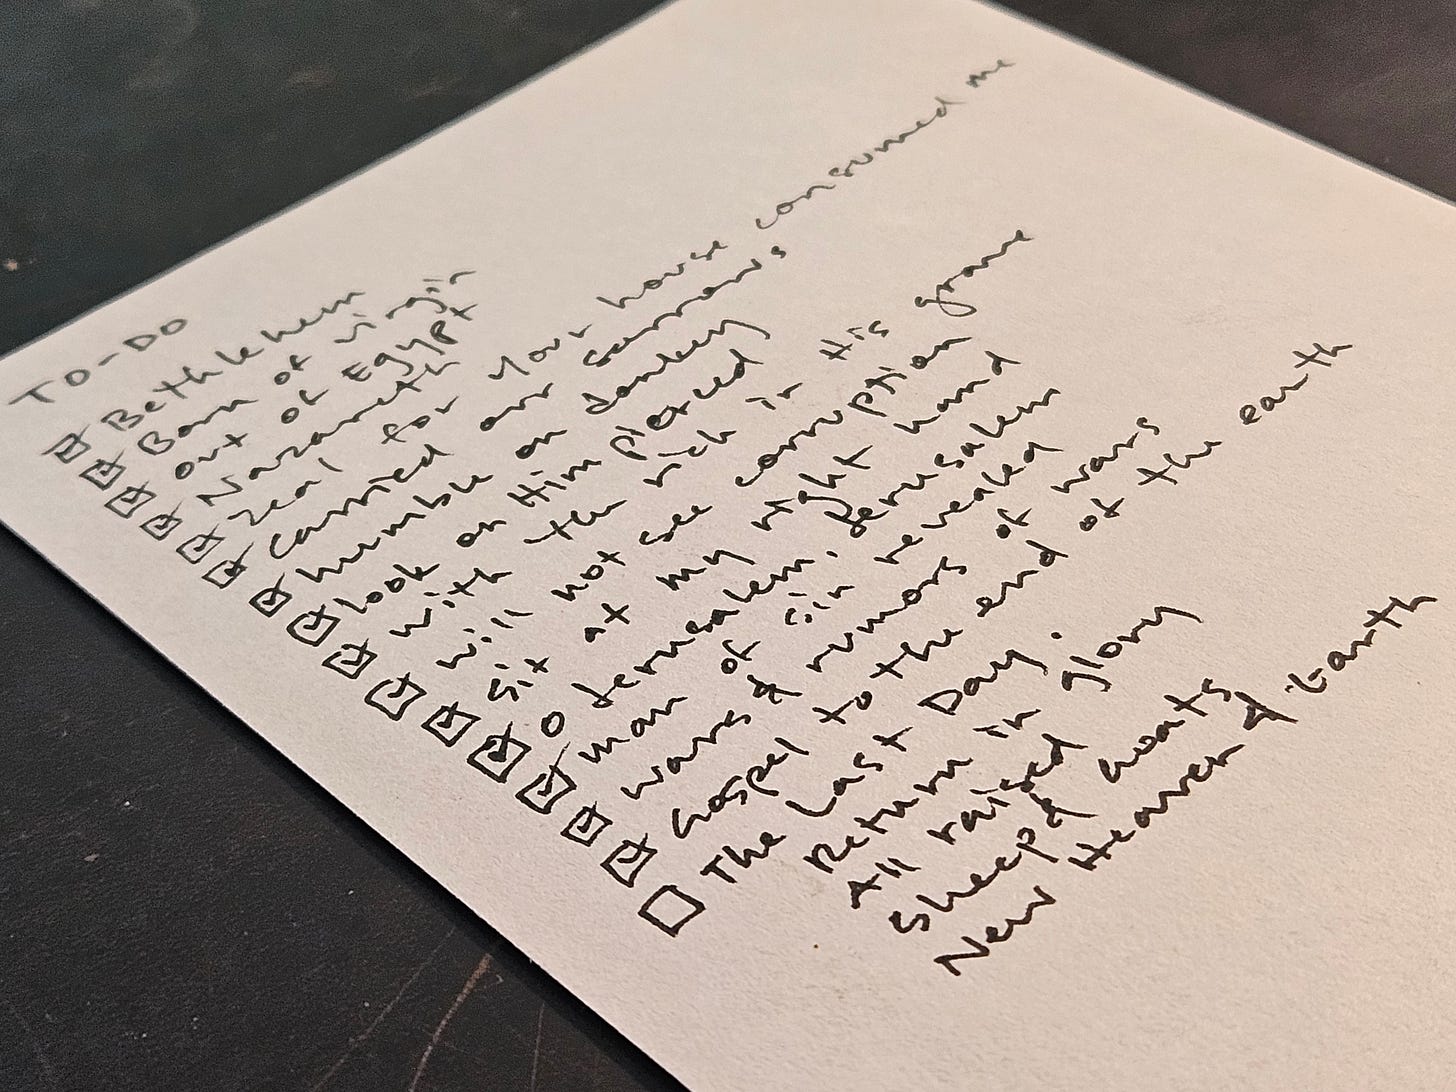 TO-DO
Bethlehem
Born of virgin
out of Egypt
Nazareth
zeal for your house consumed me
carried our sorrows
humble on donkey
look on Him pierced
with the rich in His grave
will not see corruption
sit at my right hand
O Jerusalem, Jerusalem
man of sin revealed
wars & rumors of wars
Gospel to the end of the earth
The Last Day:
Return in glory
All raised
Sheep & Goats
New Heaven & Earth